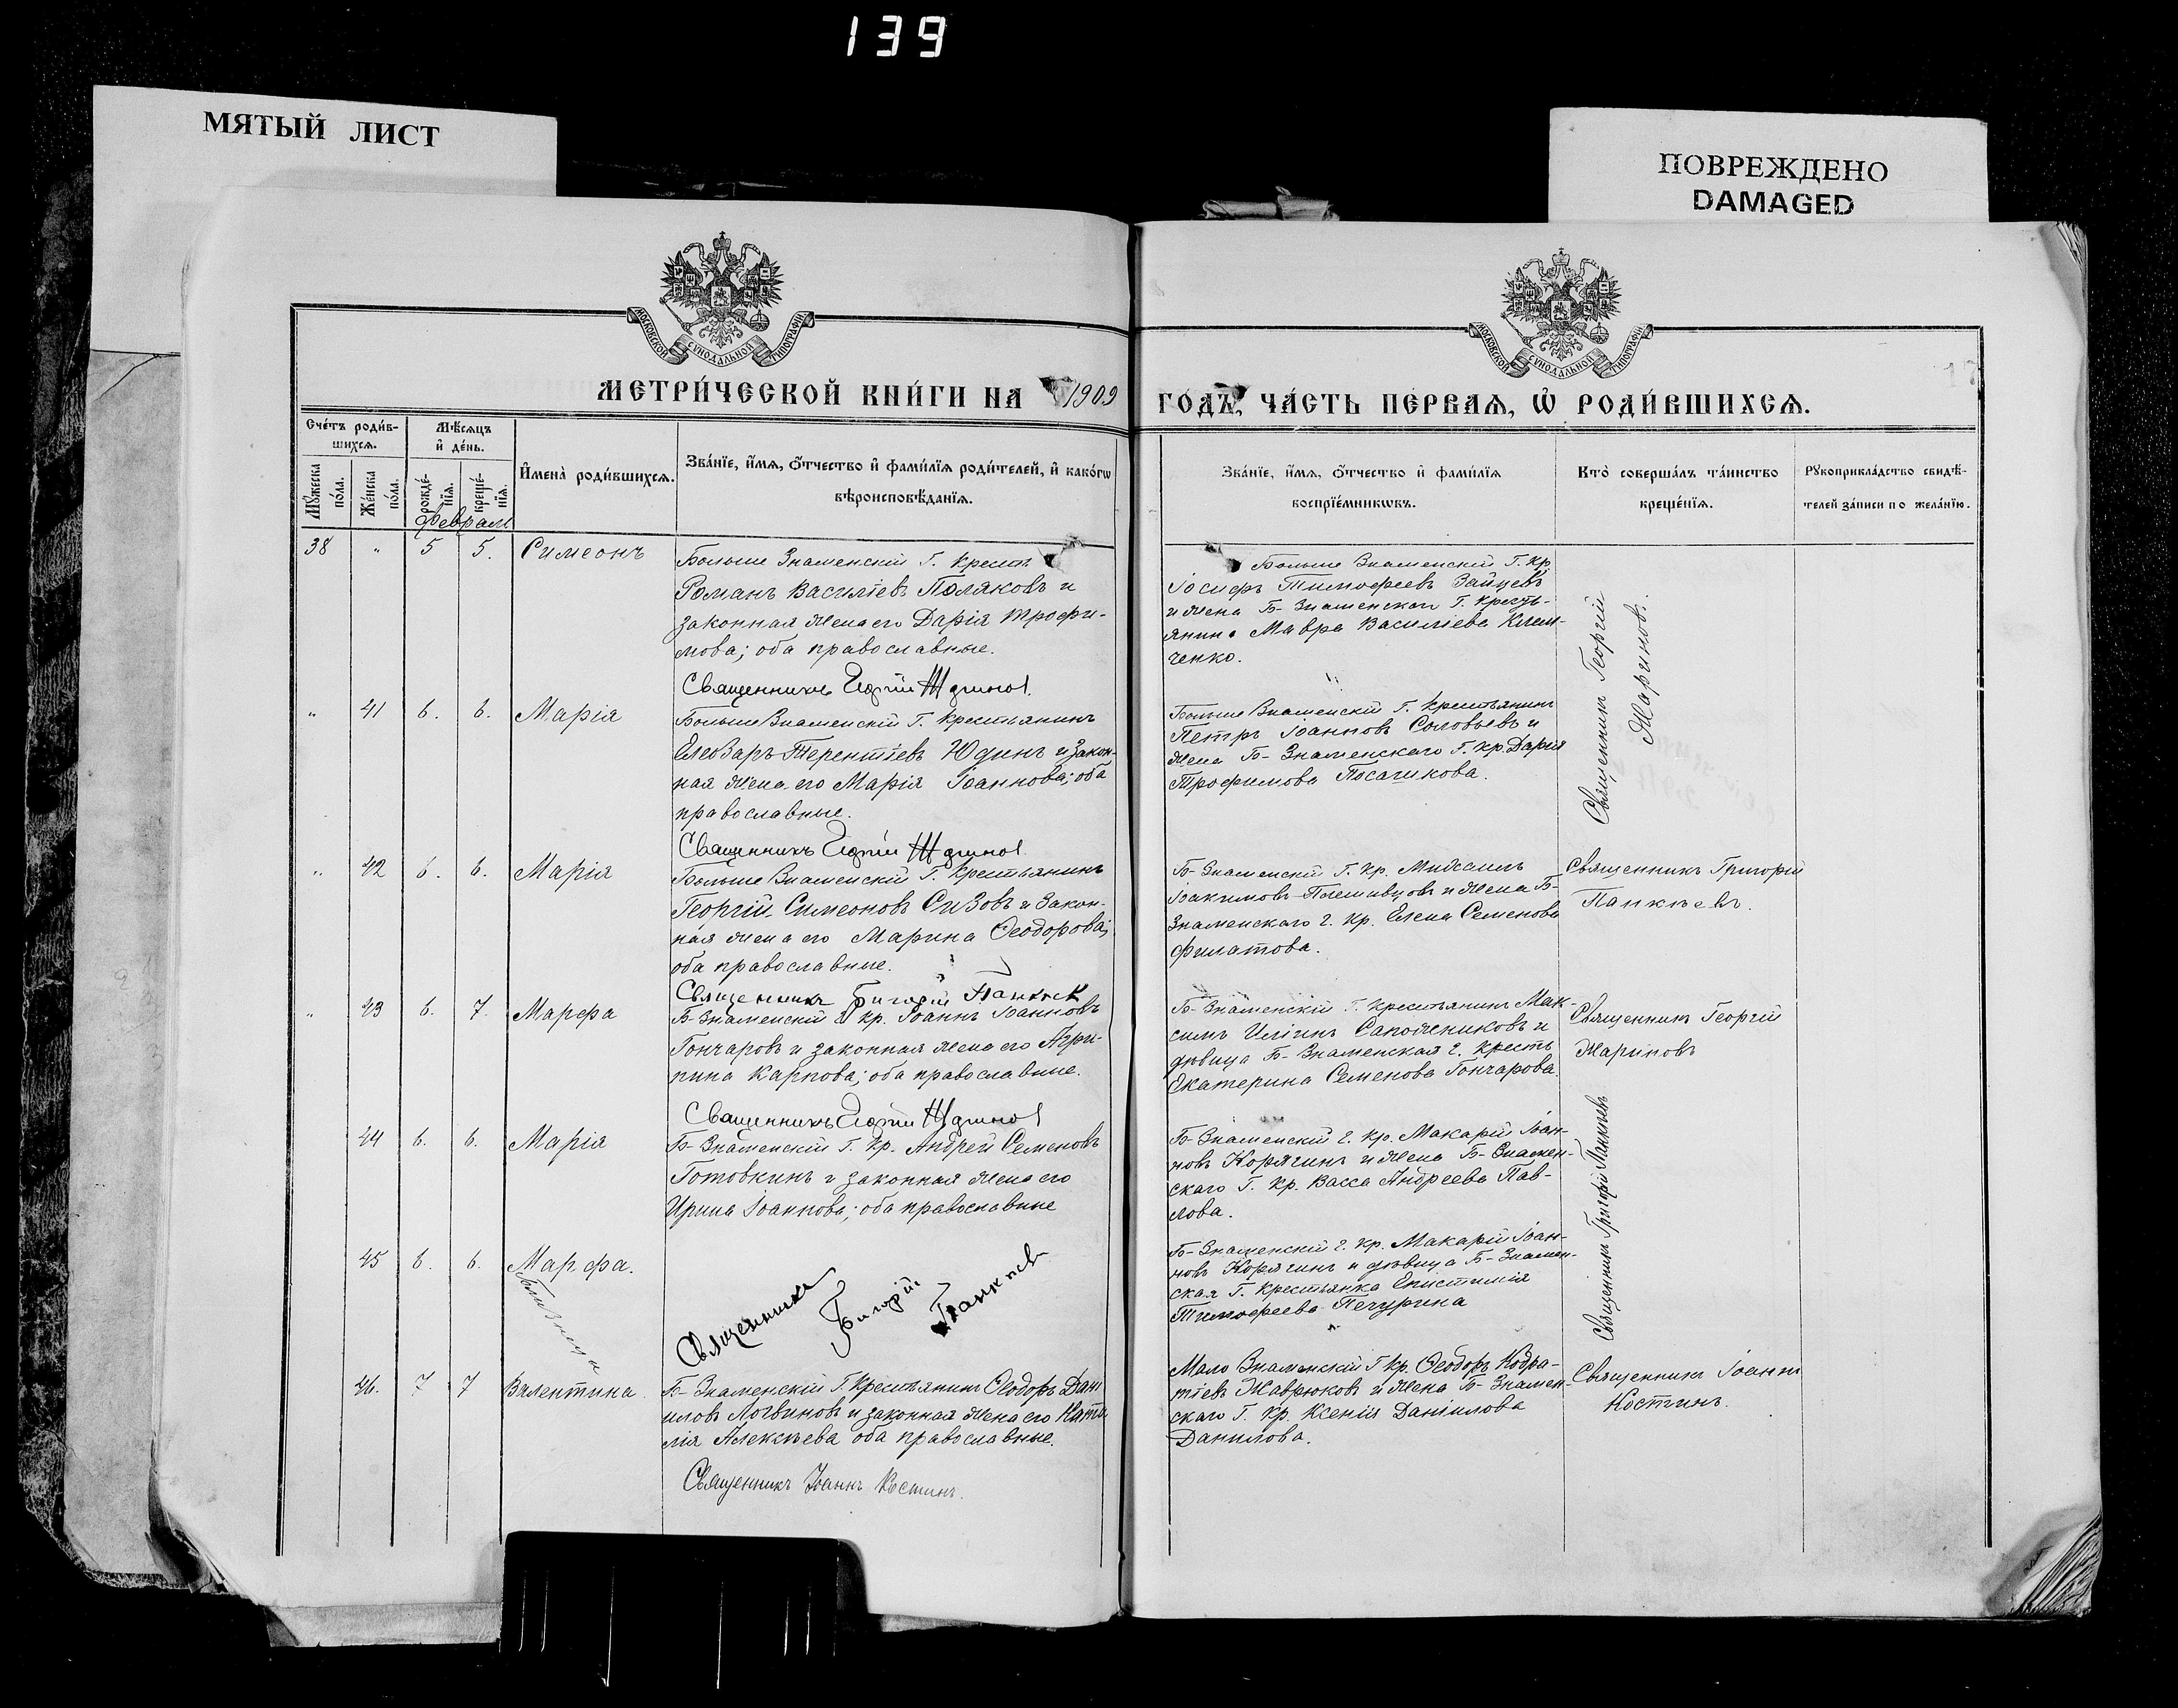 139
МЯТЫЙ ЛИСТ
ПОВРЕЖДЕНО
DAMAGED
МОСКОВСКОЙ СѴНОДАЛЬНОЙ ТИПОГРАФІИ
МОСКОВСКОЙ СѴНОДАЛЬНОЙ ТИПОГРАФІИ
МЕТРИ́ЧЕСКОЙ КНИ́ГИ НА 1909
ГОДЪ, ЧА́СТЬ ПЕ́РВАѦ, Ѡ҆ РОДИ́ВШИХСѦ.
Сче́тъ роди́в-
шихсѧ.
Мѣ́сѧцъ
и҆ де́нь.
И҆мена̀ роди́вшихсѧ.
Зва́нїе, и҆́мѧ, ѻ҆́тчество и҆ фами́лїѧ роди́телей, и҆ како́гѡ
вѣроисповѣ́данїѧ.
Мꙋ́жеска
по́ла.
Же́нска
по́ла.
рожде́-
нїѧ.
креще́-
нїѧ.
Зва́нїе, и҆́мѧ, ѻ҆́тчество и҆ фами́лїѧ
воспрїе́мникѡвъ.
Кто̀ соверша́лъ та́инство
креще́нїѧ.
Рꙋкоприкла́дство свидѣ́-
телей за́писи по жела́нїю.
Февраль
38 " 5 5. Симеонъ
Больше Знаменскій Г. Крест
Романъ Василіевъ Поляковъ и
законная жена его Дарія Трофи-
мова; оба православные.
Священникъ Георгій
Больше Знаменскій Г. Кр.
Іосифъ Тимофеевъ Зайцевъ
и жена Б-Знаменскаго Г. Кресть-
янина Мавра Василіева Клим-
ченко.
Священникъ Георгій
Мариновъ.
" 41 6. 6. Марія
Больше Знаменскій Г. Крестьянинъ
Елеазаръ Терентіевъ Юдинъ и закон-
ная жена его Марія Іоаннова; оба
православные.
Священникъ Георгій
Больше Знаменскій Г. Крестьянинъ
Петръ Іоанновъ Соловьевъ и
жена Б-Знаменскаго Г. Кр. Дарія
Трофимова Посашкова.
" 42 6. 6. Марія
Больше Знаменскій Г. Крестьянинъ
Георгій Симеоновъ Сизовъ и закон-
ная жена его Марина Феодорова;
оба православные.
Священникъ Григорій Панкѣев
Б-Знаменскій Г. Кр.
Іоакимовъ и жена Б-
Знаменскаго г. Кр. Елена Семенова
Филатова.
Священникъ Григорій
Панкѣевъ.
" 43 6. 7. Марфа
Б-Знаменскій Г. Кр. Іоаннъ Іоанновъ
Гончаровъ и законная жена его Агри-
пина Карпова; оба православные.
Священникъ Георгій
Б-Знаменскій Г. Крестьянинъ Мак-
симъ Иліинъ Сапожниковъ и
дѣвица Б-Знаменская г. Кресть
Екатерина Семенова Гончарова.
Священникъ Георгій
Мариновъ
44 6. 6. Марія
Б-Знаменскій Г. Кр. Андрей Семеновъ
Готовкинъ и законная жена его
Ирина Іоаннова; оба православные
Б-Знаменскій г. Кр. Макарій Іоан-
новъ Корягинъ и жена Б-Знамен-
скаго Г. Кр. Васса Андреева Пав-
лова.
Священникъ Григорій Панкѣевъ
45 6. 6. Марфа.
Близнецы
Священникъ Григорій Панкѣев
Б-Знаменскій г. Кр. Макарій Іоан-
новъ Корягинъ и дѣвица Б-Знамен-
ская Г. Крестьянка Епистимія
Тимофеева Печурина
46. 7 7 Валентина.
Б-Знаменскій Г. Крестьянинъ Феодоръ Дан
иловъ Логвиновъ и законная жена его Ната
лія Алексѣева оба православные.
Священникъ Іоаннъ Костинъ.
Мало Знаменскій Г Кр. Феодоръ Кодра-
тіевъ Жаврюковъ и жена Б-Знамен-
скаго Г. Кр. Ксенія Даніилова
Данилова.
Священникъ Іоаннъ
Костинъ.